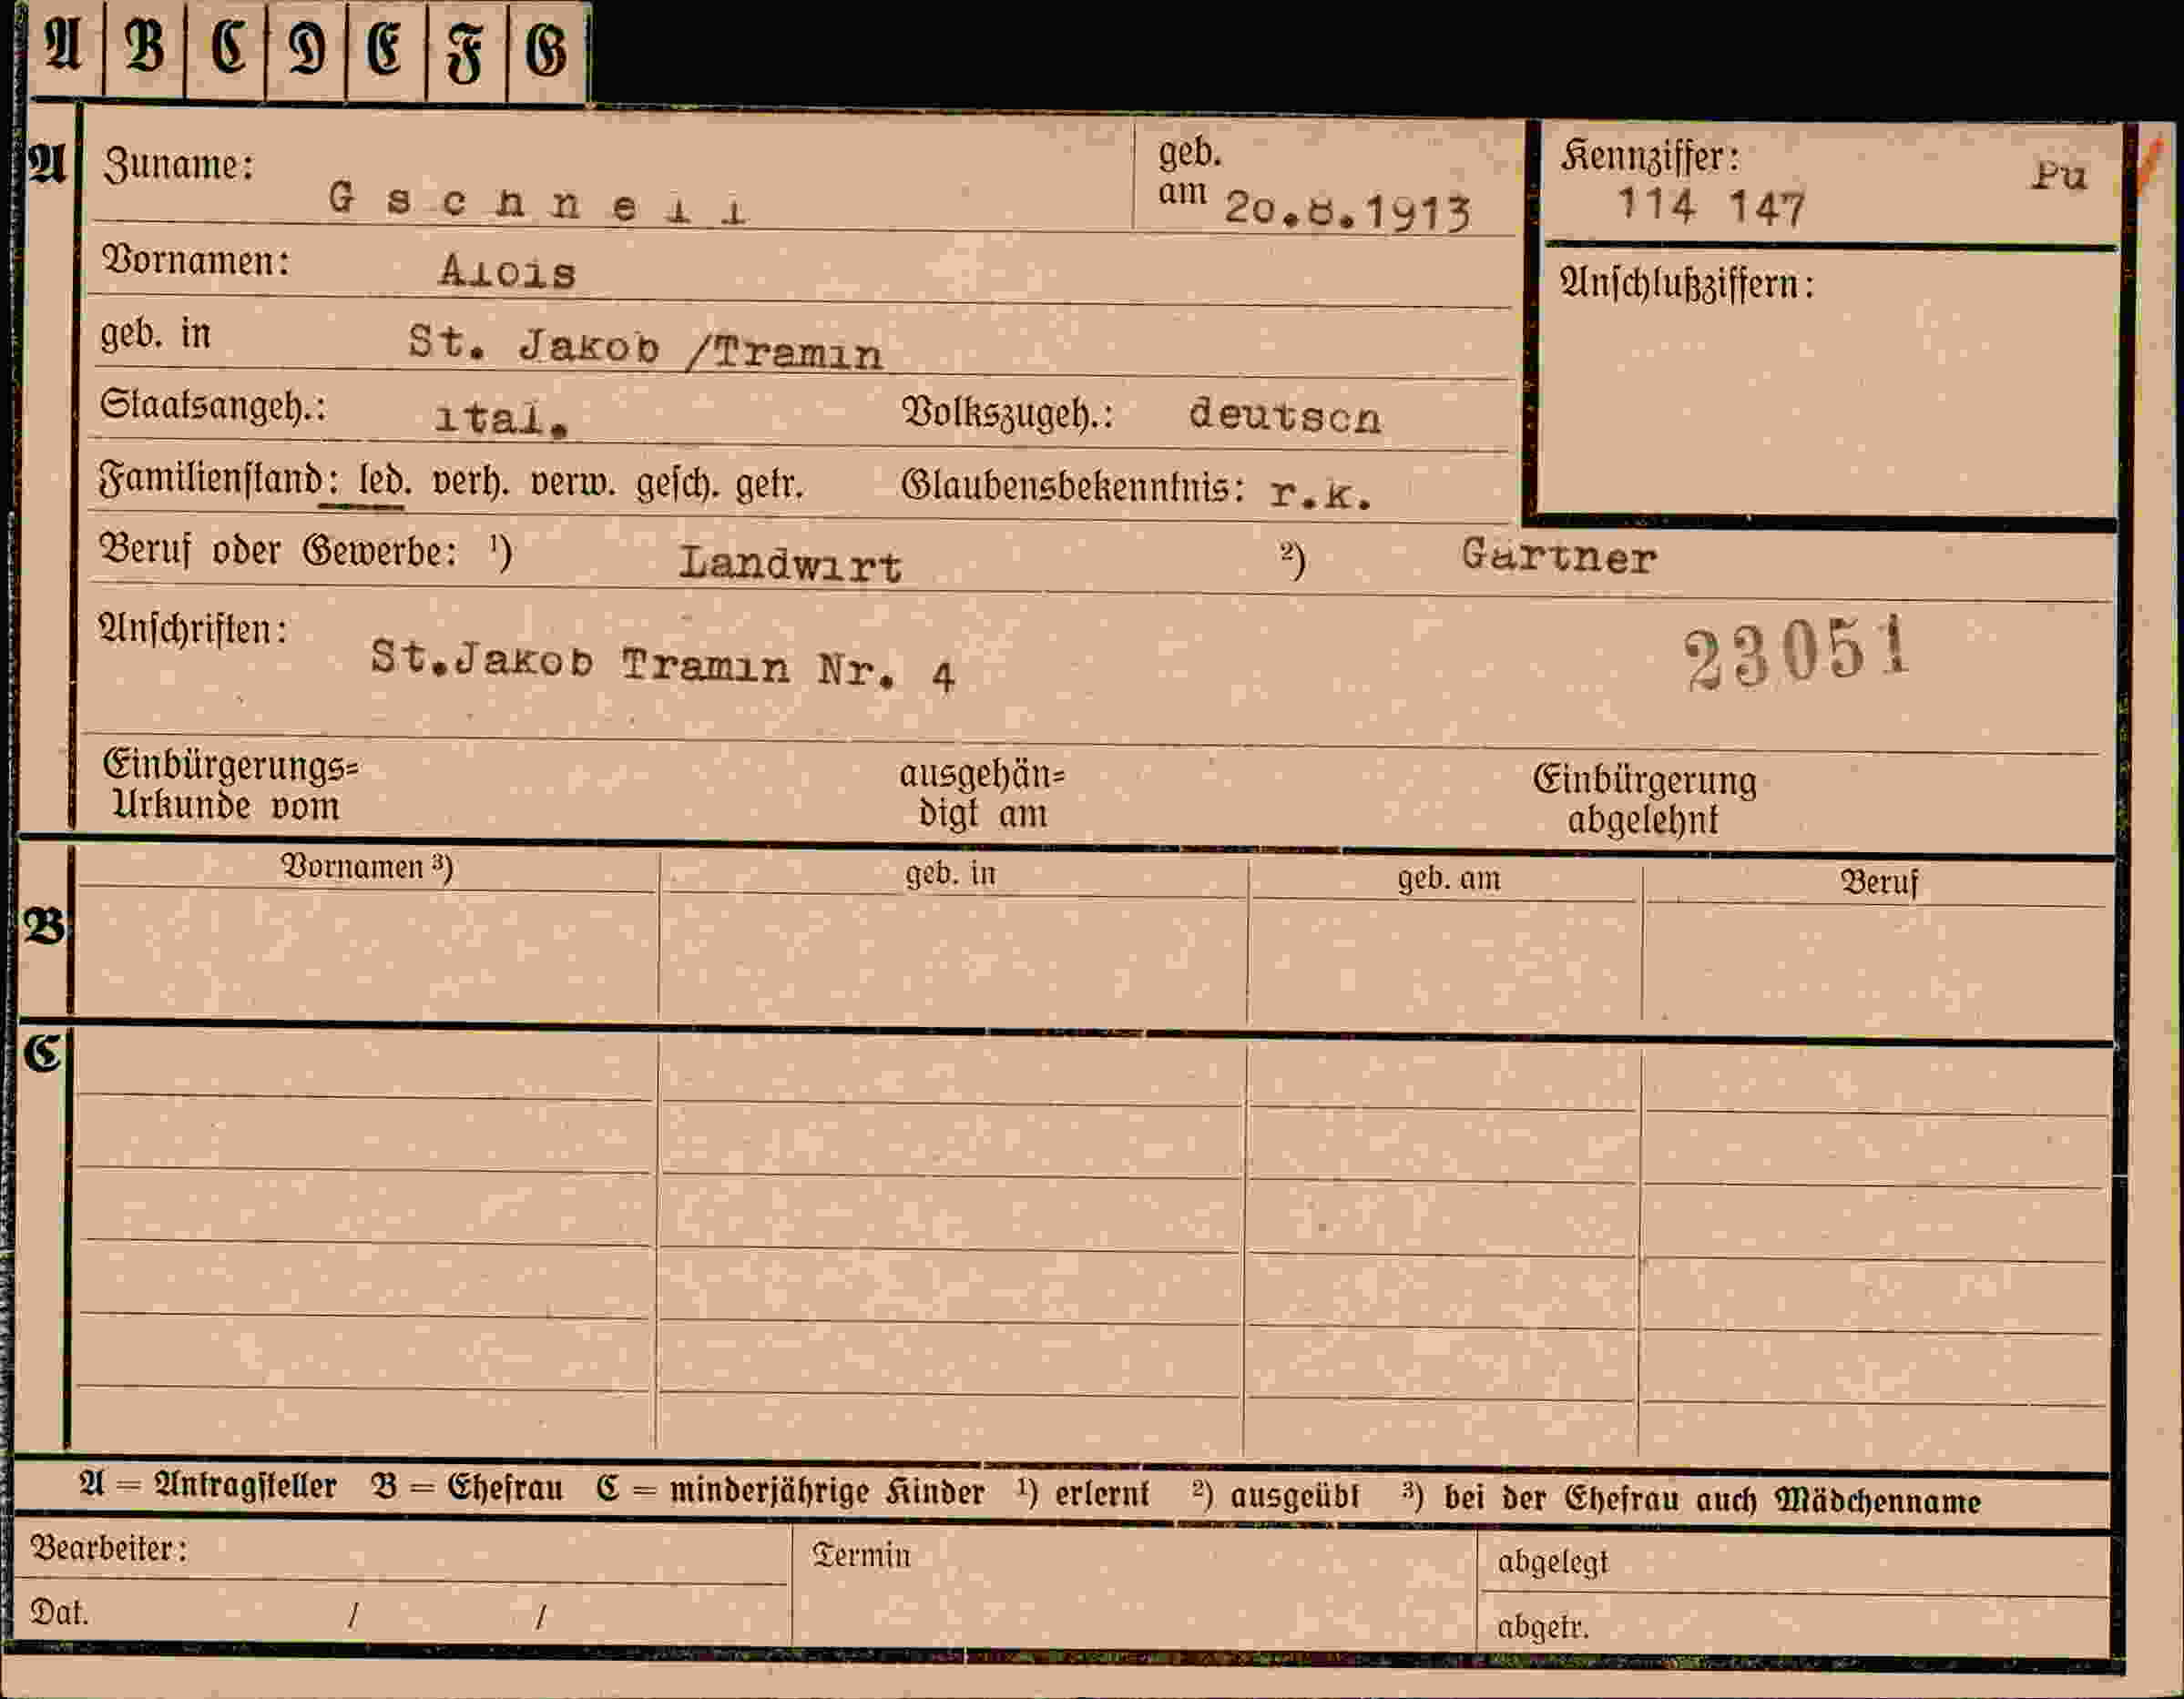 A B C D E F G
A Zuname: Gschnell geb. am 20.8.1913 Kennziffer: 114 147 Pu
Vornamen: Alois Anschlußziffern:
geb. in St. Jakob /Tramin
Staatsangeh.: ital. Volkszugeh.: deutsch
Familienstand: led. verh. verw. gesch. getr. Glaubensbekenntnis: r.k.
Beruf oder Gewerbe: ¹) Landwirt ²) Gärtner
Anschriften: St.Jakob Tramin Nr. 4 23051
Einbürgerungs= ausgehän= Einbürgerung
Urkunde vom digt am abgelehnt
Vornamen ³) geb. in geb. am Beruf
B
C
A = Antragsteller B = Ehefrau C = minderjährige Kinder ¹) erlernt ²) ausgeübt ³) bei der Ehefrau auch Mädchenname
Bearbeiter: Termin abgelegt
Dat. / / abgetr.